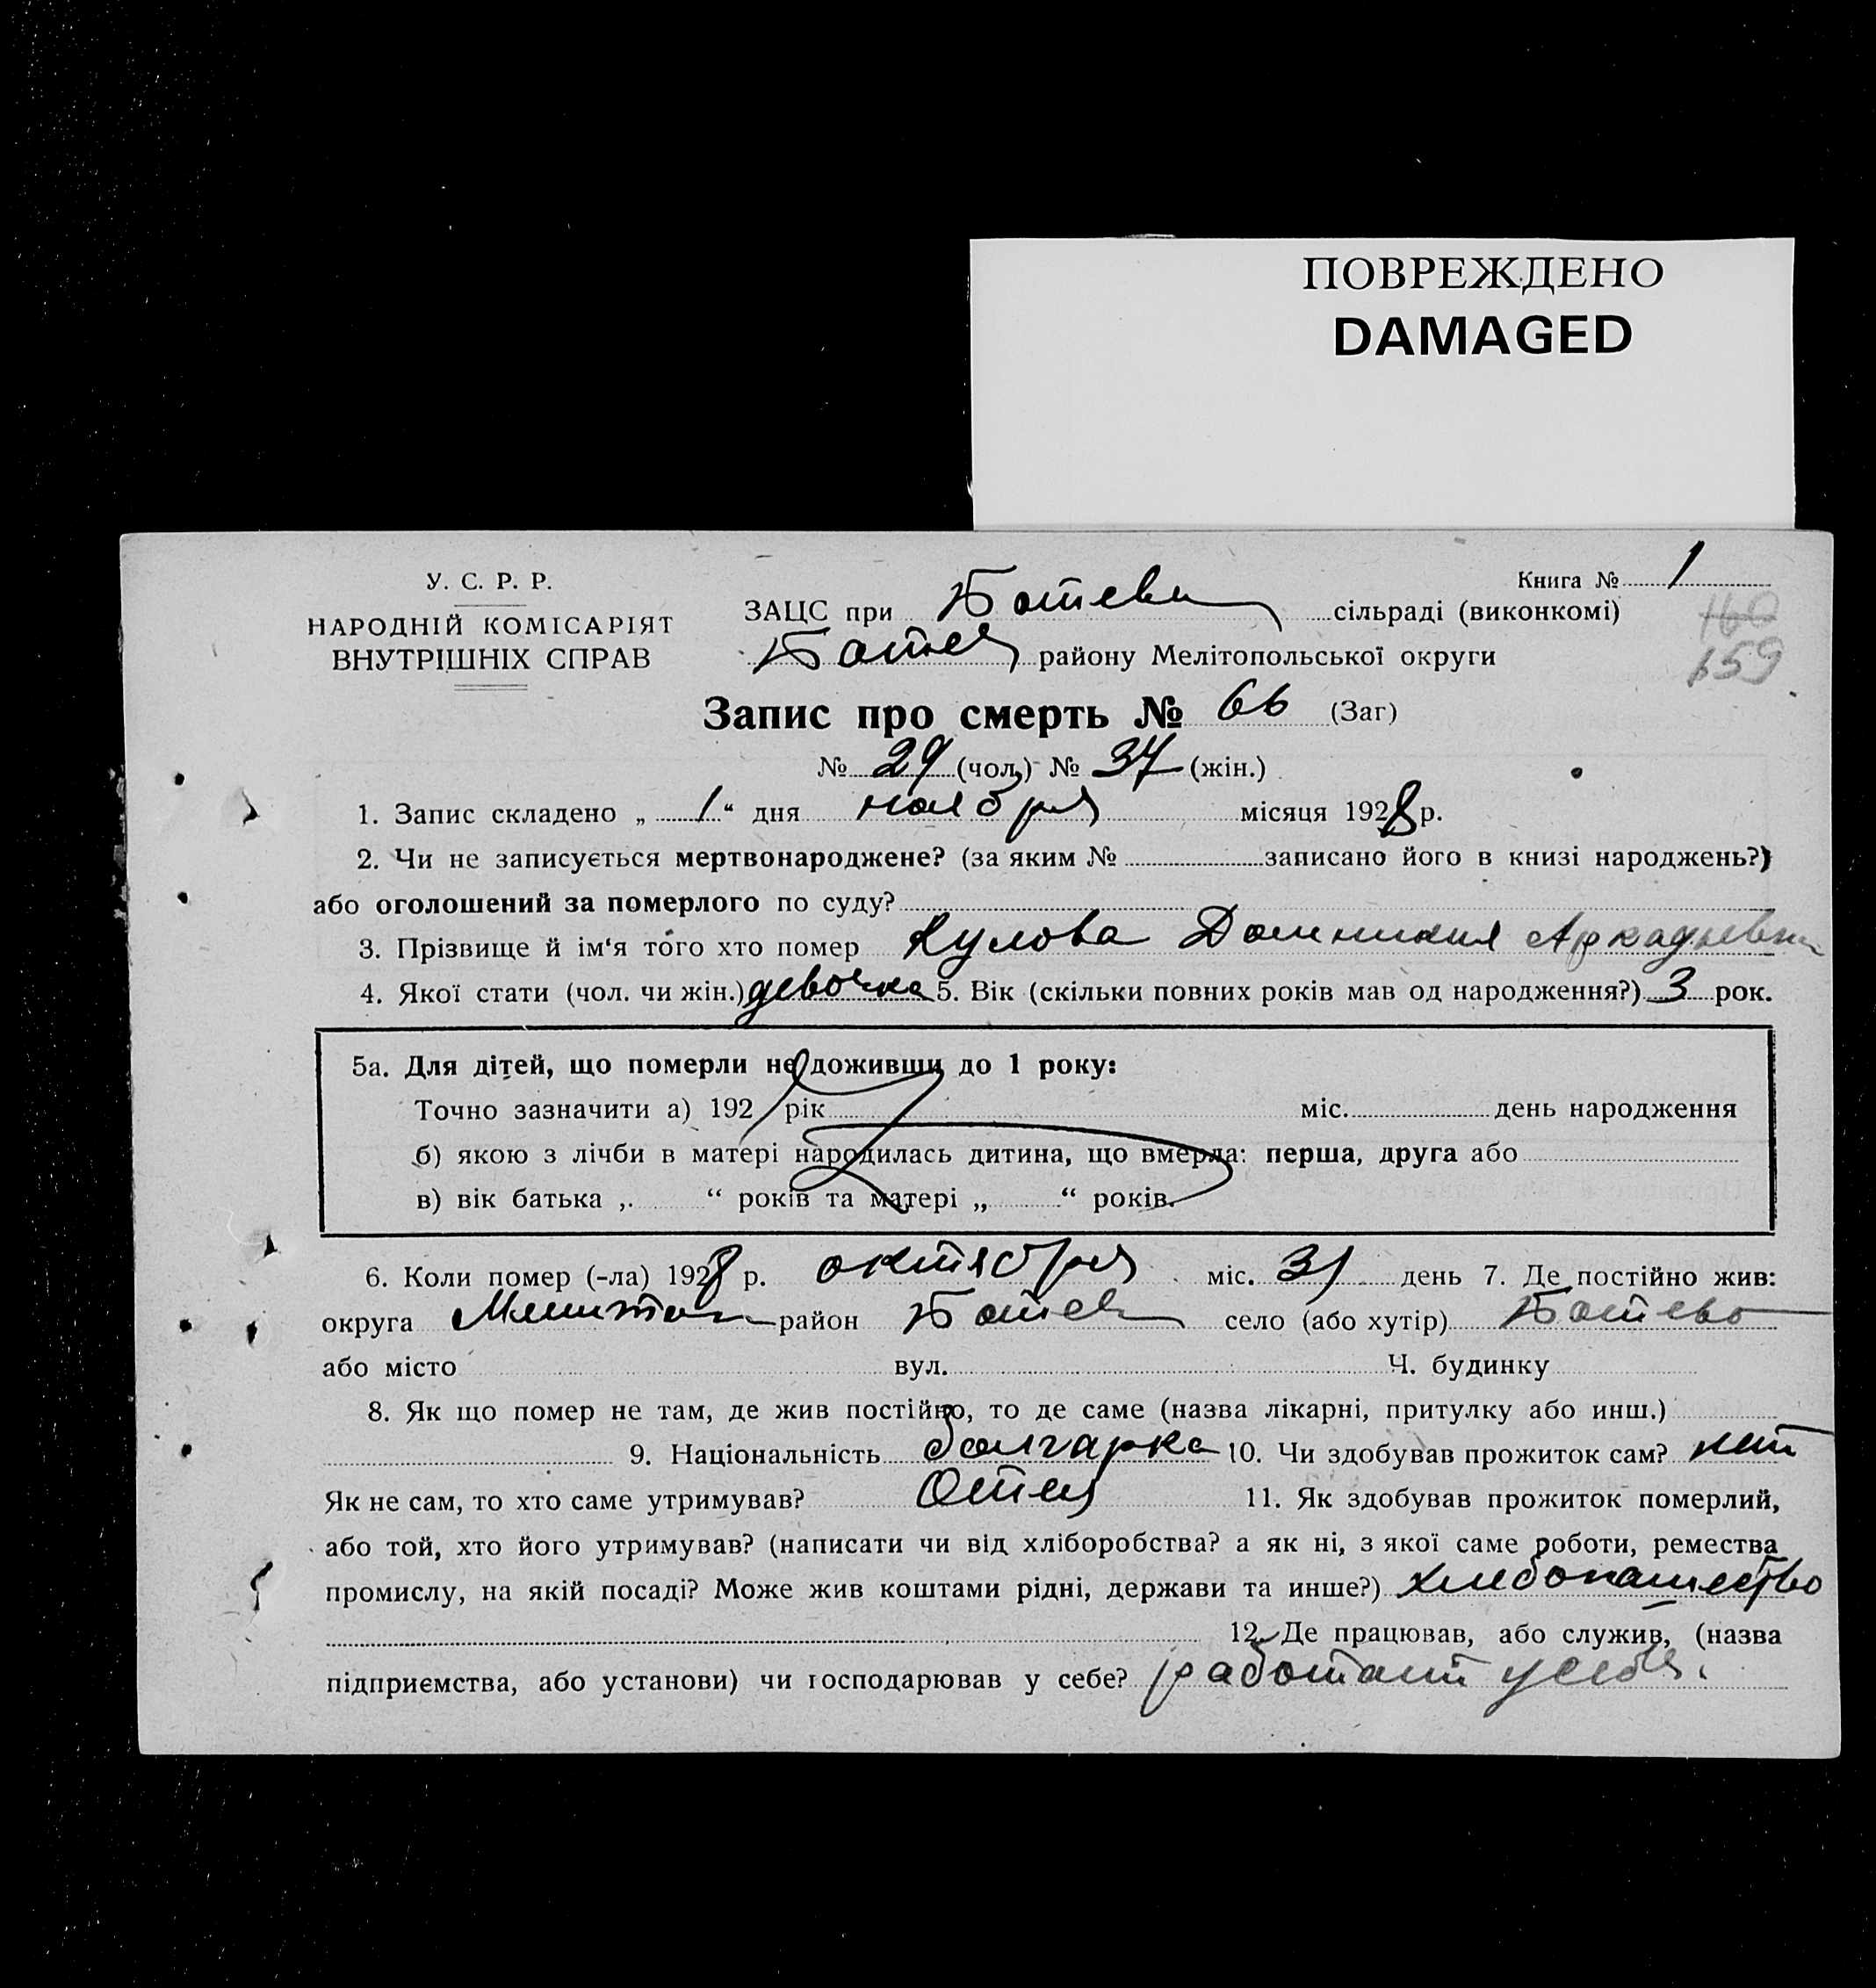 ПОВРЕЖДЕНО
DAMAGED
У. С. Р. Р.
НАРОДНІЙ КОМІСАРІЯТ
ВНУТРІШНІХ СПРАВ
Книга № 1
ЗАЦС при Ботеви сільраді (виконкомі)
160
Ботев району Мелітопольської округи
159
Запис про смерть № 66 (Заг)
№ 29 (чол.) № 37 (жін.)
1. Запис складено „ 1 “ дня ноября місяця 1928 р.
2. Чи не записується мертвонароджене? (за яким № записано його в книзі народжень?)
або оголошений за померлого по суду?
3. Прізвище й ім‘я того хто помер Кулова Домникия Аркадьевна
4. Якої стати (чол. чи жін.) девочка 5. Вік (скільки повних років мав од народження?) 3 рок.
5а. Для дітей, що померли не доживши до 1 року:
Точно зазначити а) 192 рік міс. день народження
б) якою з лічби в матері народилась дитина, що вмерла: перша, друга або
в) вік батька „ “ років та матері „ “ років.
6. Коли помер (-ла) 1928 р. октября міс. 31 день 7. Де постійно жив:
округа Мелитоп район Ботев село (або хутір) Ботево
або місто вул. Ч. будинку
8. Як що помер не там, де жив постійно, то де саме (назва лікарні, притулку або инш.)
9. Національність болгарка 10. Чи здобував прожиток сам? нет
Як не сам, то хто саме утримував? Отец 11. Як здобував прожиток померлий,
або той, хто його утримував? (написати чи від хліборобства? а як ні, з якої саме роботи, ремества
промислу, на якій посаді? Може жив коштами рідні, держави та инше?) хлебопашество
12. Де працював, або служив, (назва
підприємства, або установи) чи господарював у себе? работает у себя.